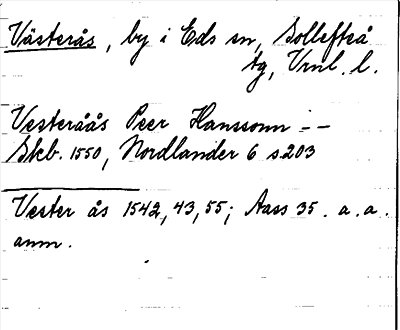 Västerås, by i Eds sn, Sollefteå
tg, Vrnl. l.
Vesteråås Peer Hanssonn - -
Skb. 1550, Nordlander 6 s.203
Vester ås 1542, 43, 55; Aass 35. a.a.
anm.